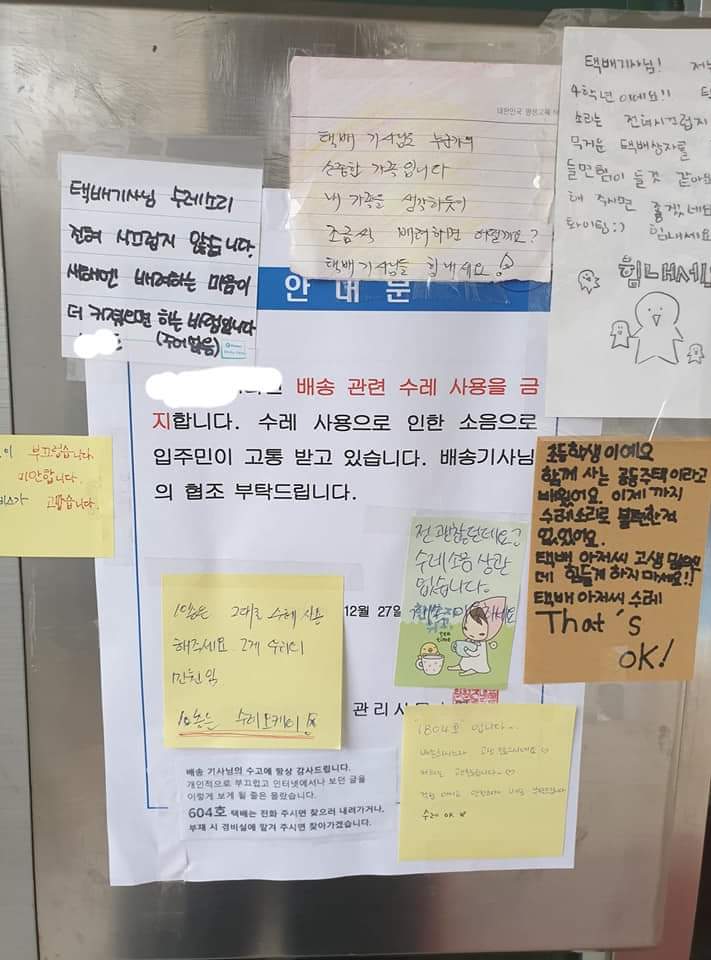 택배기사님 수레소리
전혀 시끄럽지 않습니다.
새해엔 배려하는 마음이
더 커졌으면 하는 바램입니다
(주어없음)
택배 기사님도 누군가의
소중한 가족입니다
내 가족을 생각하듯이
조금씩 배려하면 어떨까요?
택배 기사님들 힘내세요
택배기사님!
4학년 이예요!!
소리는 전혀시끄럽지
무거운 택배상자를
들면힘이 들것 같아요
해 주시면 좋겠네요
화이팅:) 힘내세요
힘내세요
안 내 문
배송 관련 수레 사용을 금
지합니다. 수레 사용으로 인한 소음으로
입주민이 고통 받고 있습니다. 배송기사님
의 협조 부탁드립니다.
12월 27일
관리사무소
부끄럽습니다.
미안합니다.
고맙습니다.
초등학생이에요
함께 사는 공동주택이라고
배웠어요. 이제까지
수레소리로 불편한적
없었어요.
택배 아저씨 고생 많으신
데 힘들게 하지마세요!!
택배 아저씨 수레
That's
OK!
전 괜찮던데요?
수레소음 상관
없습니다.
tea time
그대로 수레 사용
해주세요 그게 우리의
수레오케이
배송 기사님의 수고에 항상 감사드립니다.
개인적으로 부끄럽고 인터넷에서나 보던 글을
이렇게 보게 될 줄은 몰랐습니다.
604호 택배는 전화 주시면 찾으러 내려가거나,
부재 시 경비실에 맡겨 주시면 찾아가겠습니다.
1804호 입니다~
수레 OK